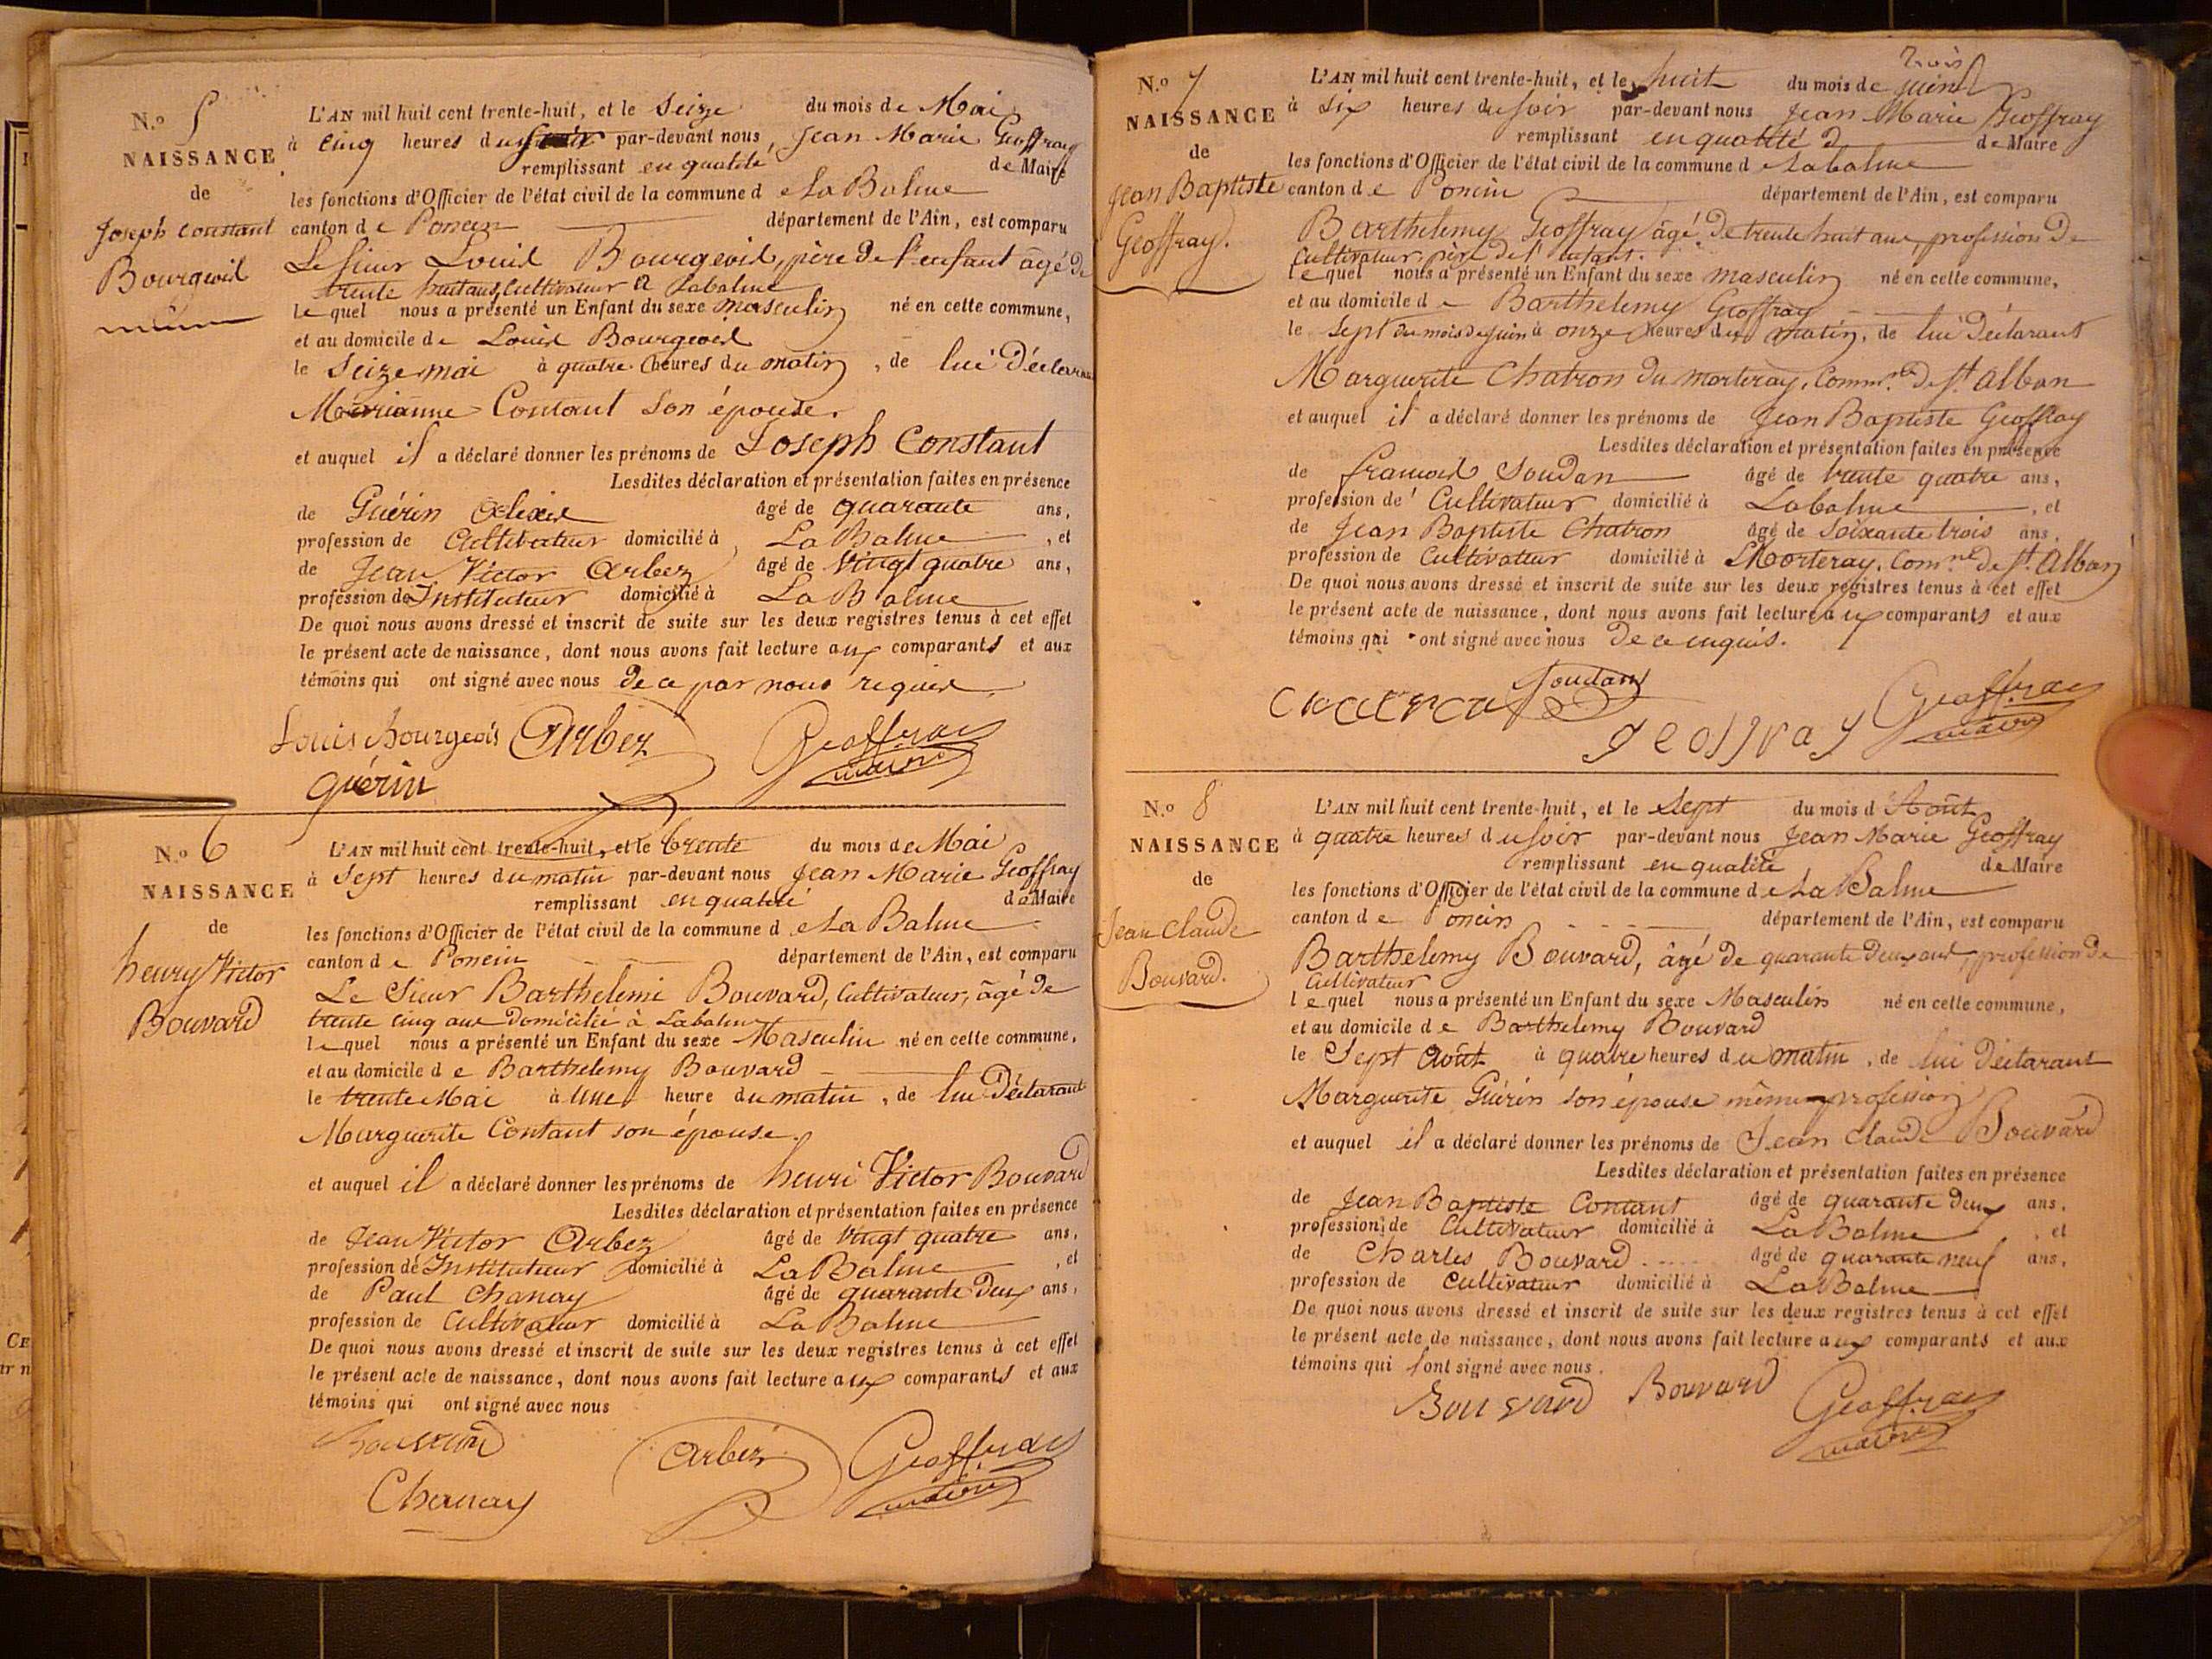 N.o 5
NAISSANCE
de
Joseph Constant
Bourgeois
L'AN mil huit cent trente-huit, et le Seize du mois de Mai
à Cinq heures du soir par-devant nous, Jean Marie Geoffray
remplissant en qualité de Maire
les fonctions d'Officier de l'état civil de la commune de La Balme
canton de Poncin département de l'Ain, est comparu
Le Sieur Louis Bourgeois, père de l'enfant âgé de
trente huit ans, Cultivateur à Labalme
lequel nous a présenté un Enfant du sexe masculin né en cette commune,
et au domicile de Louis Bourgeois
le Seize mai à quatre heures du matin, de lui Déclarant
Marianne Contant son épouse.
et auquel il a déclaré donner les prénoms de Joseph Constant
Lesdites déclaration et présentation faites en présence
de Guérin Alexis âgé de quarante ans,
profession de Cultivateur domicilié à La Balme, et
de Jean Victor Arbez âgé de Vingt quatre ans,
profession de Instituteur domicilié à La Balme
De quoi nous avons dressé et inscrit de suite sur les deux registres tenus à cet effet
le présent acte de naissance, dont nous avons fait lecture aux comparants et aux
témoins qui ont signé avec nous de ce par nous requis
Louis Bourgeois Arbez Geoffray
maire
guérin
N.o 6
NAISSANCE
de
henry Victor
Bouvard
L'AN mil huit cent trente-huit, et le trente du mois de Mai
à Sept heures du matin par-devant nous Jean Marie Geoffray
remplissant en qualité de Maire
les fonctions d'Officier de l'état civil de la commune de La Balme
canton de Poncin département de l'Ain, est comparu
Le Sieur Barthelemi Bouvard, Cultivateur, âgé de
trente cinq ans domicilié à Labalme
lequel nous a présenté un Enfant du sexe Masculin né en cette commune,
et au domicile de Barthelemy Bouvard
le trente Mai à Une heure du matin, de lui Déclarant
Marguerite Contant son épouse.
et auquel il a déclaré donner les prénoms de henri Victor Bouvard
Lesdites déclaration et présentation faites en présence
de Jean Victor Arbez âgé de Vingt quatre ans,
profession de Instituteur domicilié à La Balme, et
de Paul Chanay âgé de quarante Deux ans,
profession de Cultivateur domicilié à La Balme
De quoi nous avons dressé et inscrit de suite sur les deux registres tenus à cet effet
le présent acte de naissance, dont nous avons fait lecture aux comparants et aux
témoins qui ont signé avec nous
Bouvard Arbez Geoffray
Chanay maire
N.o 7
NAISSANCE
de
Jean Baptiste
Geoffray.
trois
L'AN mil huit cent trente-huit, et le huit du mois de juin
à Six heures du soir par-devant nous Jean Marie Geoffray
remplissant en qualité de Maire
les fonctions d'Officier de l'état civil de la commune de Labalme
canton de Poncin département de l'Ain, est comparu
Barthelemy Geoffray âgé de trente huit ans, profession De
Cultivateur, père de l'enfant.
lequel nous a présenté un Enfant du sexe masculin né en cette commune,
et au domicile de Barthelemy Geoffray
le Sept du mois de juin à onze heures du matin, de lui Déclarant
Marguerite Chatron du morteray, Comm.ne De St. Alban
et auquel il a déclaré donner les prénoms de Jean Baptiste Geoffray
Lesdites déclaration et présentation faites en présence
de francois Soudan âgé de trente quatre ans,
profession de Cultivateur domicilié à Labalme, et
de Jean Baptiste Chatron âgé de Soixante trois ans,
profession de Cultivateur domicilié à Morteray, Com.ne de St. Alban
De quoi nous avons dressé et inscrit de suite sur les deux registres tenus à cet effet
le présent acte de naissance, dont nous avons fait lecture aux comparants et aux
témoins qui ont signé avec nous De ce enquis.
Soudan
geoffray Geoffray
maire
N.o 8
NAISSANCE
de
Jean Claude
Bouvard.
L'AN mil huit cent trente-huit, et le Sept du mois d'Août
à quatre heures du soir par-devant nous Jean Marie Geoffray
remplissant en qualité de Maire
les fonctions d'Officier de l'état civil de la commune de La Balme
canton de Poncin département de l'Ain, est comparu
Barthelemy Bouvard, âgé de quarante Deux ans, profession De
Cultivateur
lequel nous a présenté un Enfant du sexe Masculin né en cette commune,
et au domicile de Barthelemy Bouvard
le Sept Août à quatre heures du matin, de lui Déclarant
Marguerite Guérin son épouse même profession
et auquel il a déclaré donner les prénoms de Jean Claude Bouvard
Lesdites déclaration et présentation faites en présence
de Jean Baptiste Contant âgé de quarante Deux ans,
profession de Cultivateur domicilié à La Balme, et
de Charles Bouvard âgé de quarante neuf ans,
profession de Cultivateur domicilié à La Balme
De quoi nous avons dressé et inscrit de suite sur les deux registres tenus à cet effet
le présent acte de naissance, dont nous avons fait lecture aux comparants et aux
témoins qui ont signé avec nous.
Bouvard Bouvard Geoffray
maire